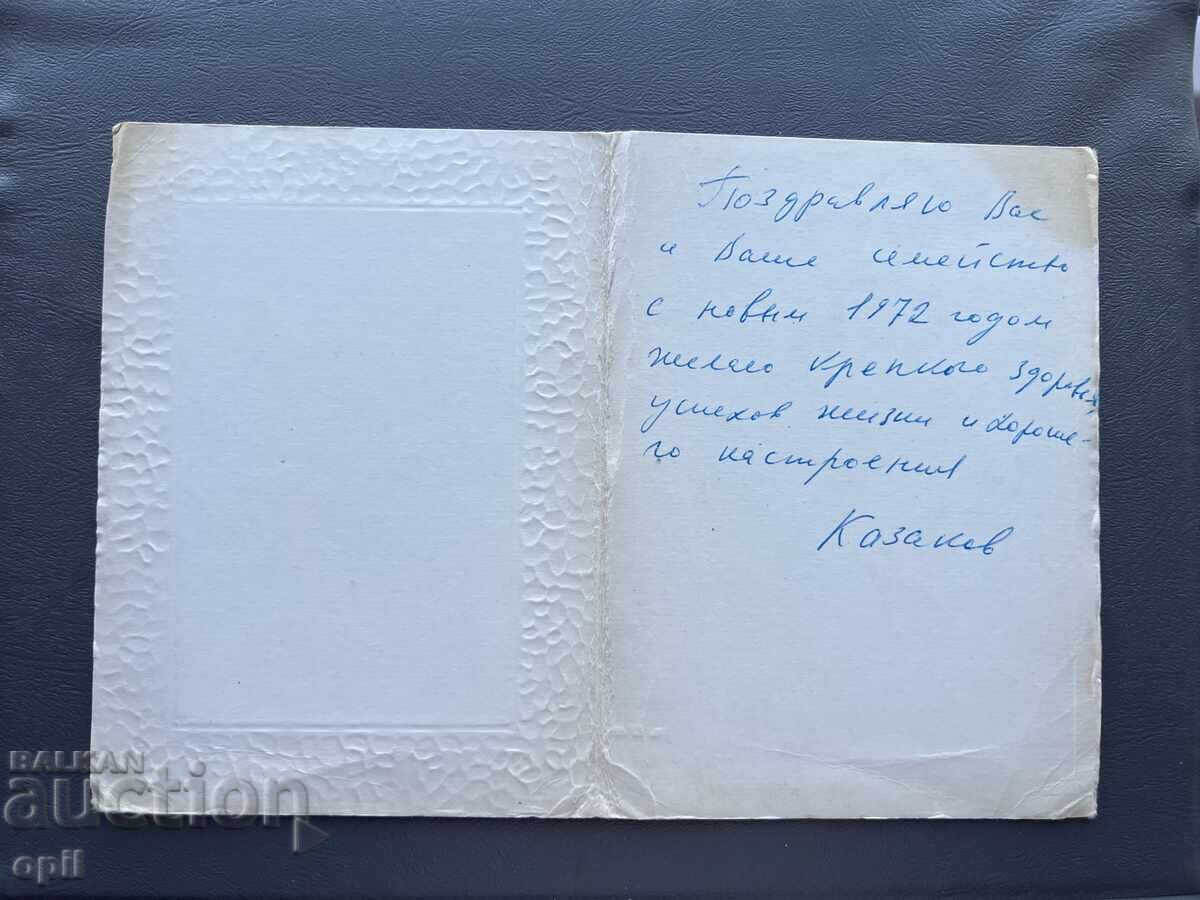 Поздравляю Вас
и Ваше семейство
с новым 1972 годом
желаю крепкого здоровья,
успехов жизни и хороше-
го настроения
Казаков
BALKAN
auction
opil